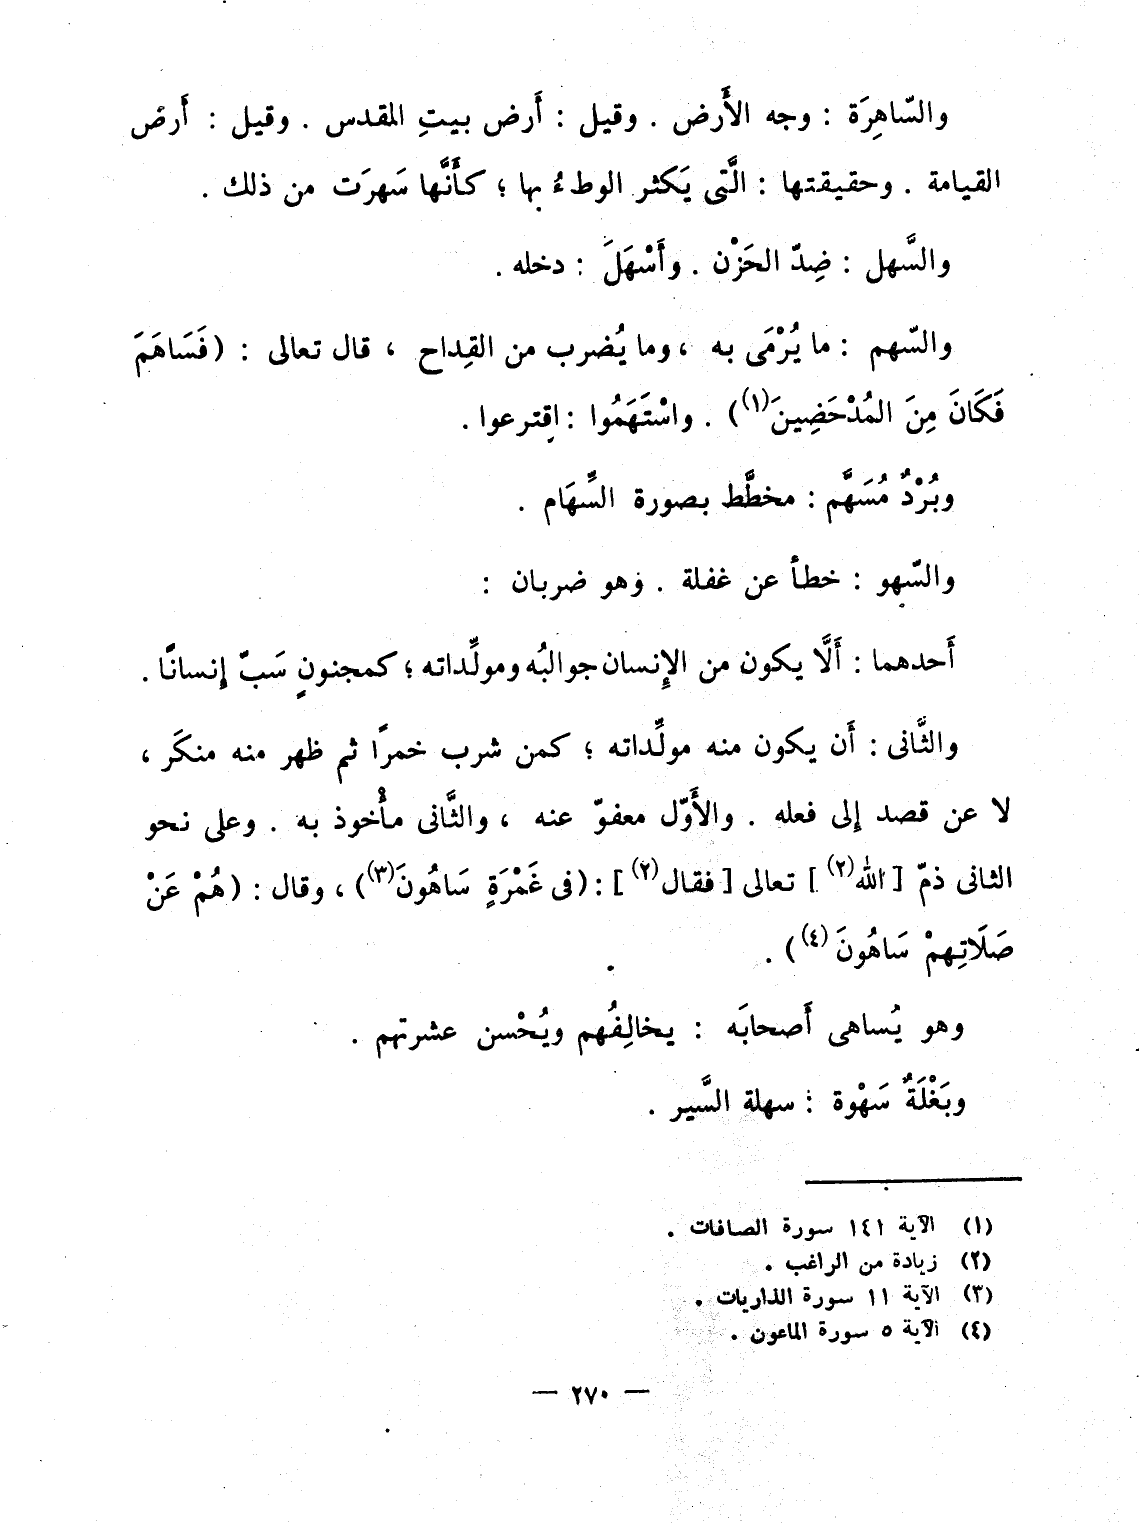 والسّاهِرَة : وجه الأَرض . وقيل : أَرض بيتِ المقدس . وقيل : أَرض
القيامة . وحقيقتها : الَّتى يَكثر الوطءُ بها ؛ كأَنَّها سَهرَت من ذلك .
والسَّهل : ضِدّ الحَزْن . وأَسْهَلَ : دخله .
والسّهم : ما يُرْمَى به ، وما يُضرب من القِداح ، قال تعالى : (فَسَاهَمَ
فَكَانَ مِنَ المُدْحَضِينَ(١)) . واسْتَهَمُوا : اقترعوا .
وبُرْدٌ مُسَهَّم : مخطَّط بصورة السِّهَام .
والسّهو : خطأ عن غفلة . وهو ضربان :
أَحدهما : أَلَّا يكون من الإِنسان جوالبُه ومولِّداته ؛ كمجنونٍ سَبّ إِنسانًا .
والثَّانى : أَن يكون منه مولِّداته ؛ كمن شرب خمرًا ثم ظهر منه منكَر ،
لا عن قصد إلى فعله . والأَوّل معفوّ عنه ، والثَّانى مأْخوذ به . وعلى نحو
الثانى ذمّ [ الله(٢) ] تعالى [ فقال(٢) ] : (فى غَمْرَةٍ سَاهُونَ(٣)) ، وقال : (هُمْ عَنْ
صَلَاتِهِمْ سَاهُونَ (٤)) .
وهو يُساهى أَصحابَه : يخالِفُهم ويُحْسن عشرتهم .
وبَغْلَةٌ سَهْوة : سهلة السَّير .
(١) الآية ١٤١ سورة الصافات .
(٢) زيادة من الراغب .
(٣) الآية ١١ سورة الذاريات .
(٤) الآية ٥ سورة الماعون .
— ٢٧٠ —